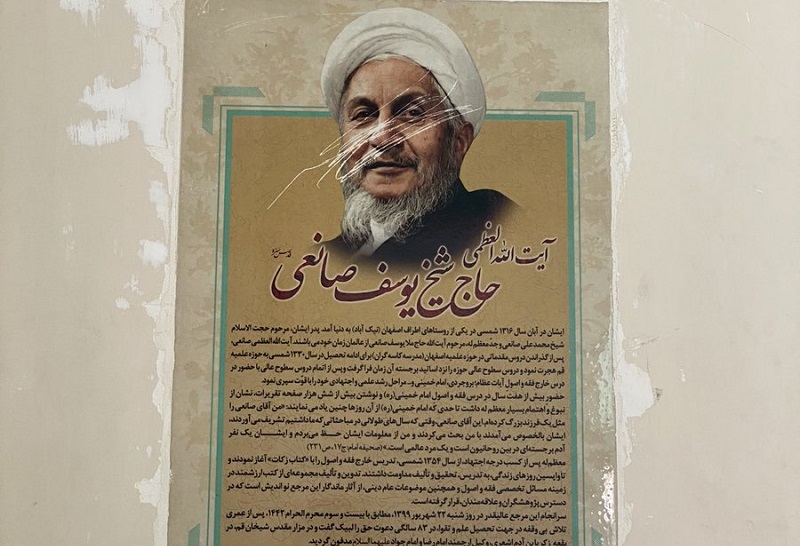 آیت الله العظمی
حاج شیخ یوسف صانعی
ایشان در آبان سال ۱۳۱۶ شمسی در یکی از روستاهای اطراف اصفهان (نیک آباد) به دنیا آمد. پدر ایشان، مرحوم حجت الاسلام
شیخ محمد علی صانعی و جدّ معظم له، مرحوم آیت الله حاج ملا یوسف صانعی از عالمان زمان خود می باشند. آیت الله العظمی صانعی،
پس از گذراندن دروس مقدماتی در حوزه علمیه اصفهان (مدرسه کاسه گران) برای ادامه تحصیل در سال ۱۳۳۰ شمسی به حوزه علمیه
قم هجرت نمود و دروس سطوح عالی حوزه را نزد اساتید برجسته آن زمان فرا گرفت و پس از اتمام دروس سطوح عالی با حضور در
درس خارج فقه و اصول آیات عظام: بروجردی، امام خمینی و... مراحل رشد علمی و اجتهادی خود را با قوّت سپری نمود.
حضور بیش از هفت سال در درس فقه و اصول امام خمینی(ره) و نوشتن بیش از شش هزار صفحه تقریرات، نشان از
نبوغ و اهتمام بسیار معظم له داشت تا حدی که امام خمینی(ره) از آن روزها چنین یاد می نمایند: «من آقای صانعی را
مثل یک فرزند بزرگ کرده ام. این آقای صانعی، وقتی که سال های طولانی در مباحثاتی که ما داشتیم تشریف می آوردند،
ایشان بالخصوص می آمدند با من بحث می کردند و من از معلومات ایشان حظ می بردم و ایشان یک نفر
آدم برجسته ای در بین روحانیون است و یک مرد عالمی است.» (صحیفه امام: ج۱۷، ص ۲۳۱)
معظم له پس از کسب درجه اجتهاد، از سال ۱۳۵۴ شمسی، تدریس خارج فقه و اصول را با «کتاب زکات» آغاز نمودند و
تا واپسین روزهای زندگی، به تدریس، تحقیق و تألیف مداومت داشتند. تدوین و تألیف مجموعه ای از کتب ارزشمند در
زمینه مسائل تخصصی فقه و اصول و همچنین موضوعات عام دینی، از آثار ماندگار این مرجع نواندیش است که در
دسترس پژوهشگران و علاقه مندان، قرار گرفته است.
سرانجام این مرجع عالیقدر در روز شنبه ۲۲ شهریور ۱۳۹۹، مطابق با بیست و سوم محرم الحرام ۱۴۴۲، پس از عمری
تلاش بی وقفه در جهت تحصیل علم و تقوا، در ۸۳ سالگی دعوت حق را لبیک گفت و در مزار مقدس شیخان قم، در
بقعه زکریا بن آدم اشعری وکیل ارجمند امام رضا و امام جواد علیهما السلام مدفون گردید.